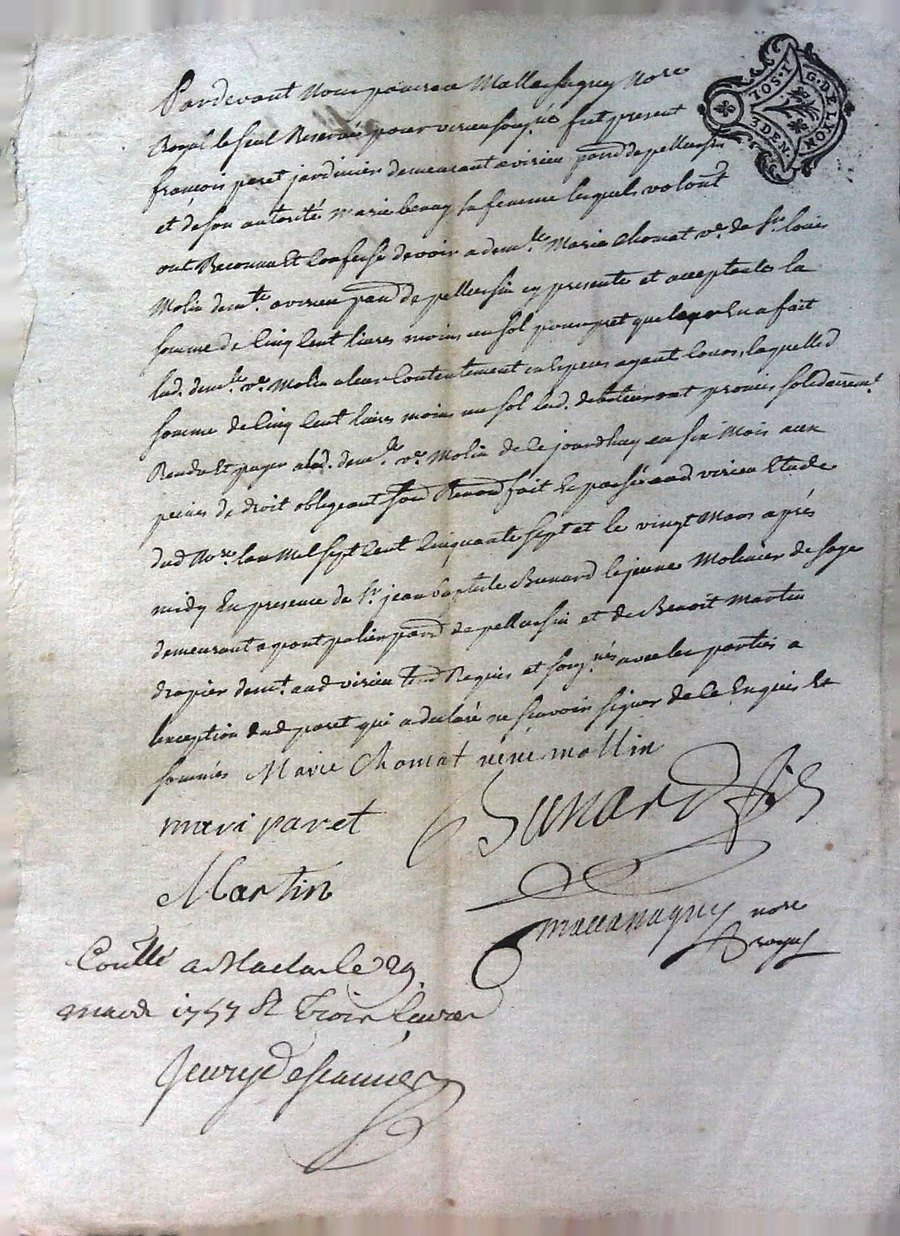 G. DE LYON
1. SOL. 3 DEN.
Pardevant Nous
Royal le seul Reservé pour virieu soujné fut present
françois paret jardinier demeurant a virieu parr de pellussin
et de son autorité marie benay sa femme lesquels volont
ont Reconnu Et Confessé devoir a demlle Marie Chomat ve de Sr louis
Molin demte a virieu parr de pellussin cy presente et acceptante la
somme de Cinq Cent livres moins un sol pour pret que leur En a fait
lad. demlle ve Molin a leur Contentement En Especes ayant Cours, laquelle
somme de Cinq Cent livres moins un sol lad. debiteur ont promis solidairemt
Rendre Et payer a lad. demlle ve Molin de ce jourdhuy en six Mois aux
peines de droit obligeant fait Et passé aud virieu Etude
dud Nore lan Mil sept Cent Cinquante sept et le vingt Mars après
midy En presence de Sr jean baptiste Bunard le jeune Molinier de soye
demeurant a pont parr de pellussin et de Benoit Martin
drapier demt. aud virieu Requis et soujnés avec les parties a
lexception dud paret qui a declaré ne scavoir signer de ce Enquis Et
sommés Marie Chomat veuve mollin
mari paret
Bunard fils
Martin
nore
royal
Contllé a Maclas le 29
mars 1757 R trois livres